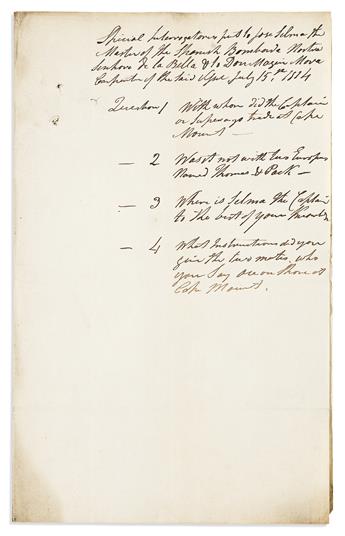 Special Interrogatories put to Jose Selma the
Master of the Spanish Bombarda Nostra
Senhora de la Bella & to Don Mora
Carpenter of the said July 15th 1814
Question 1 With whom did the Captain
or Supercargo trade at Cape
Mount —
— 2 Was it not with two Europeans
Named Thomas & Pack —
— 3 Where is Selma the Captain
to the best of your
— 4 What Instructions did you
give the two mates who
you Say are on Shore at
Cape Mount.